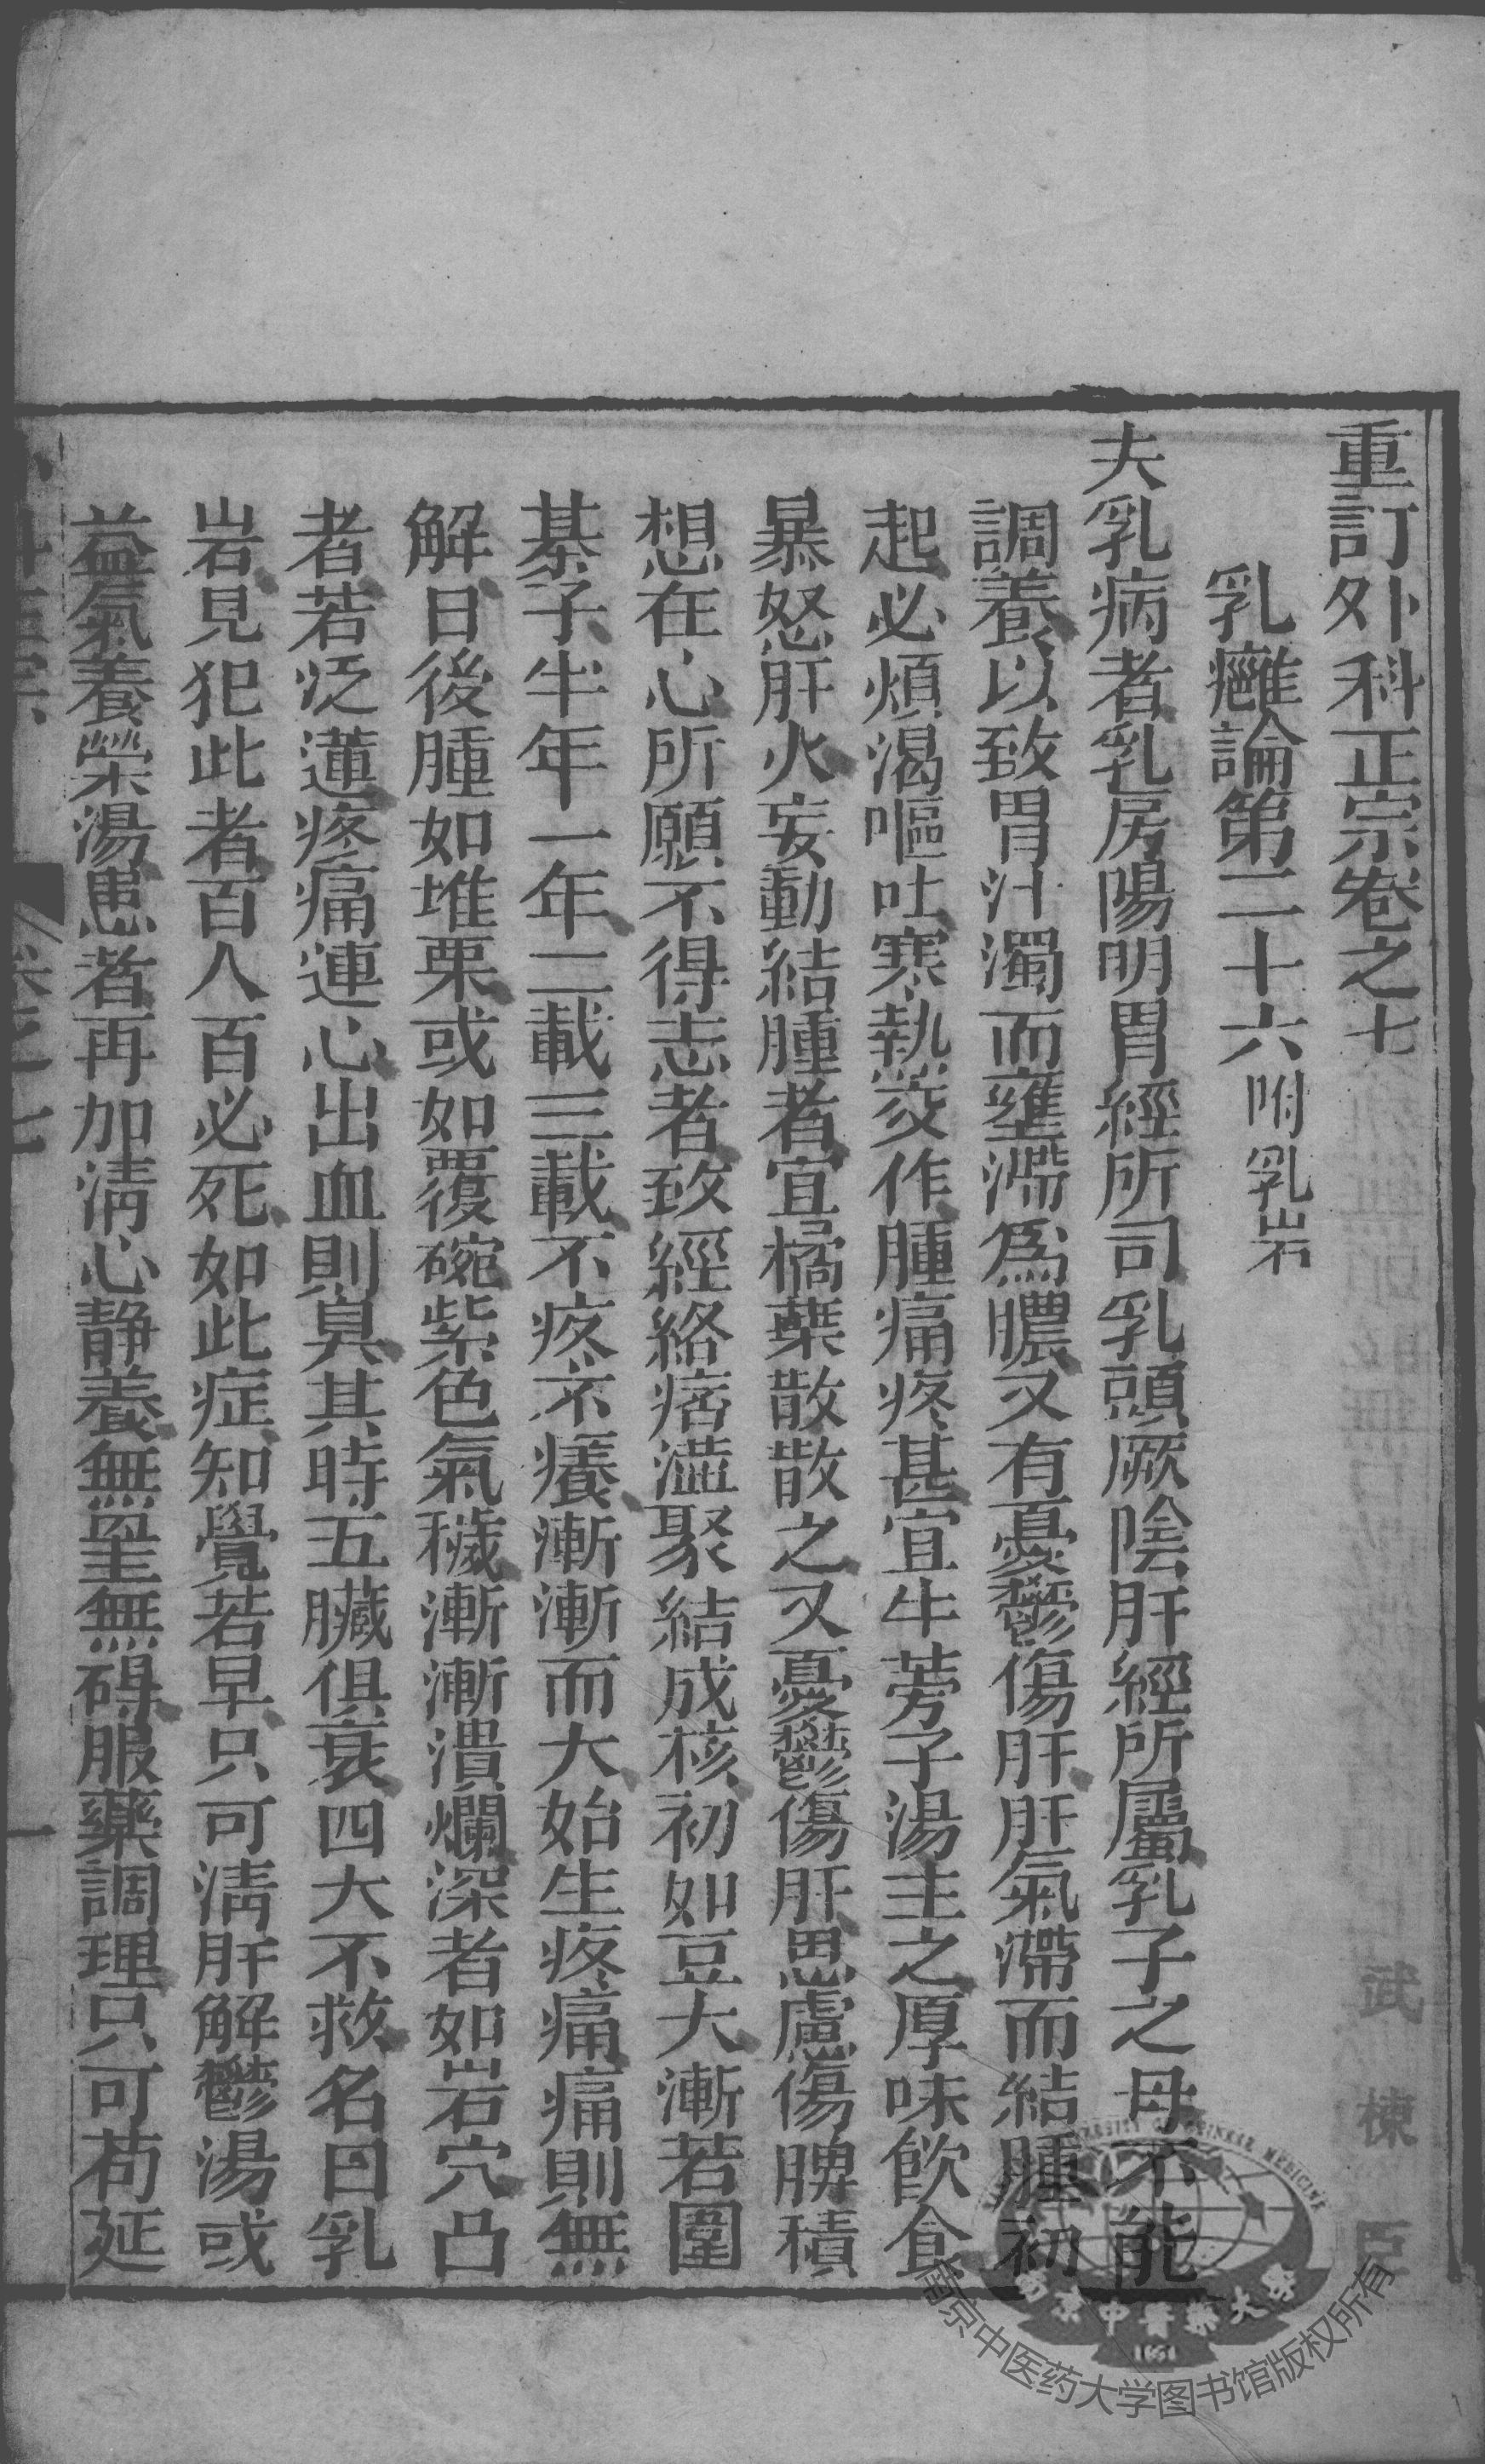 重訂外科正宗卷之七
乳癰論第二十六附乳岩
夫乳病者乳房陽明胃經所司乳頭厥陰肝經所屬乳子之母不能
調養以致胃汁濁而壅滯為膿又有憂鬱傷肝肝氣滯而結腫初
起必煩渴嘔吐寒熱交作腫痛疼甚宜牛蒡子湯主之厚味飲食
暴怒肝火妄動結腫者宜橘葉散散之又憂鬱傷肝思慮傷脾積
想在心所願不得志者致經絡痞澁聚結成核初如豆大漸若圍
棊子半年一年二載三載不疼不癢漸漸而大始生疼痛痛則無
解日後腫如堆栗或如覆碗紫色氣穢漸漸潰爛深者如岩穴凸
者若泛蓮疼痛連心出血則臭其時五臟俱衰四大不救名曰乳
岩見犯此者百人百必死如此症知覺若早只可清肝解鬱湯或
益氣養榮湯患者再加清心静養無罣無碍服藥調理只可苟延
外科正宗 卷之七 一
武 棟 臣
南京中医药大学
1954
南京中医药大学图书馆版权所有